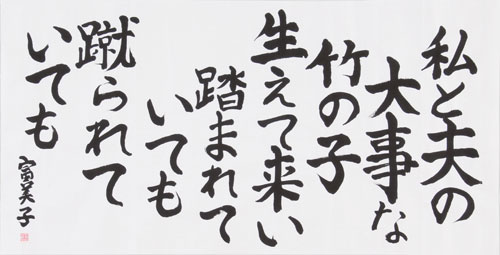 私と夫の
大事な
竹の子
生えて来い
踏まれて
いても
蹴られて
いても
富美子